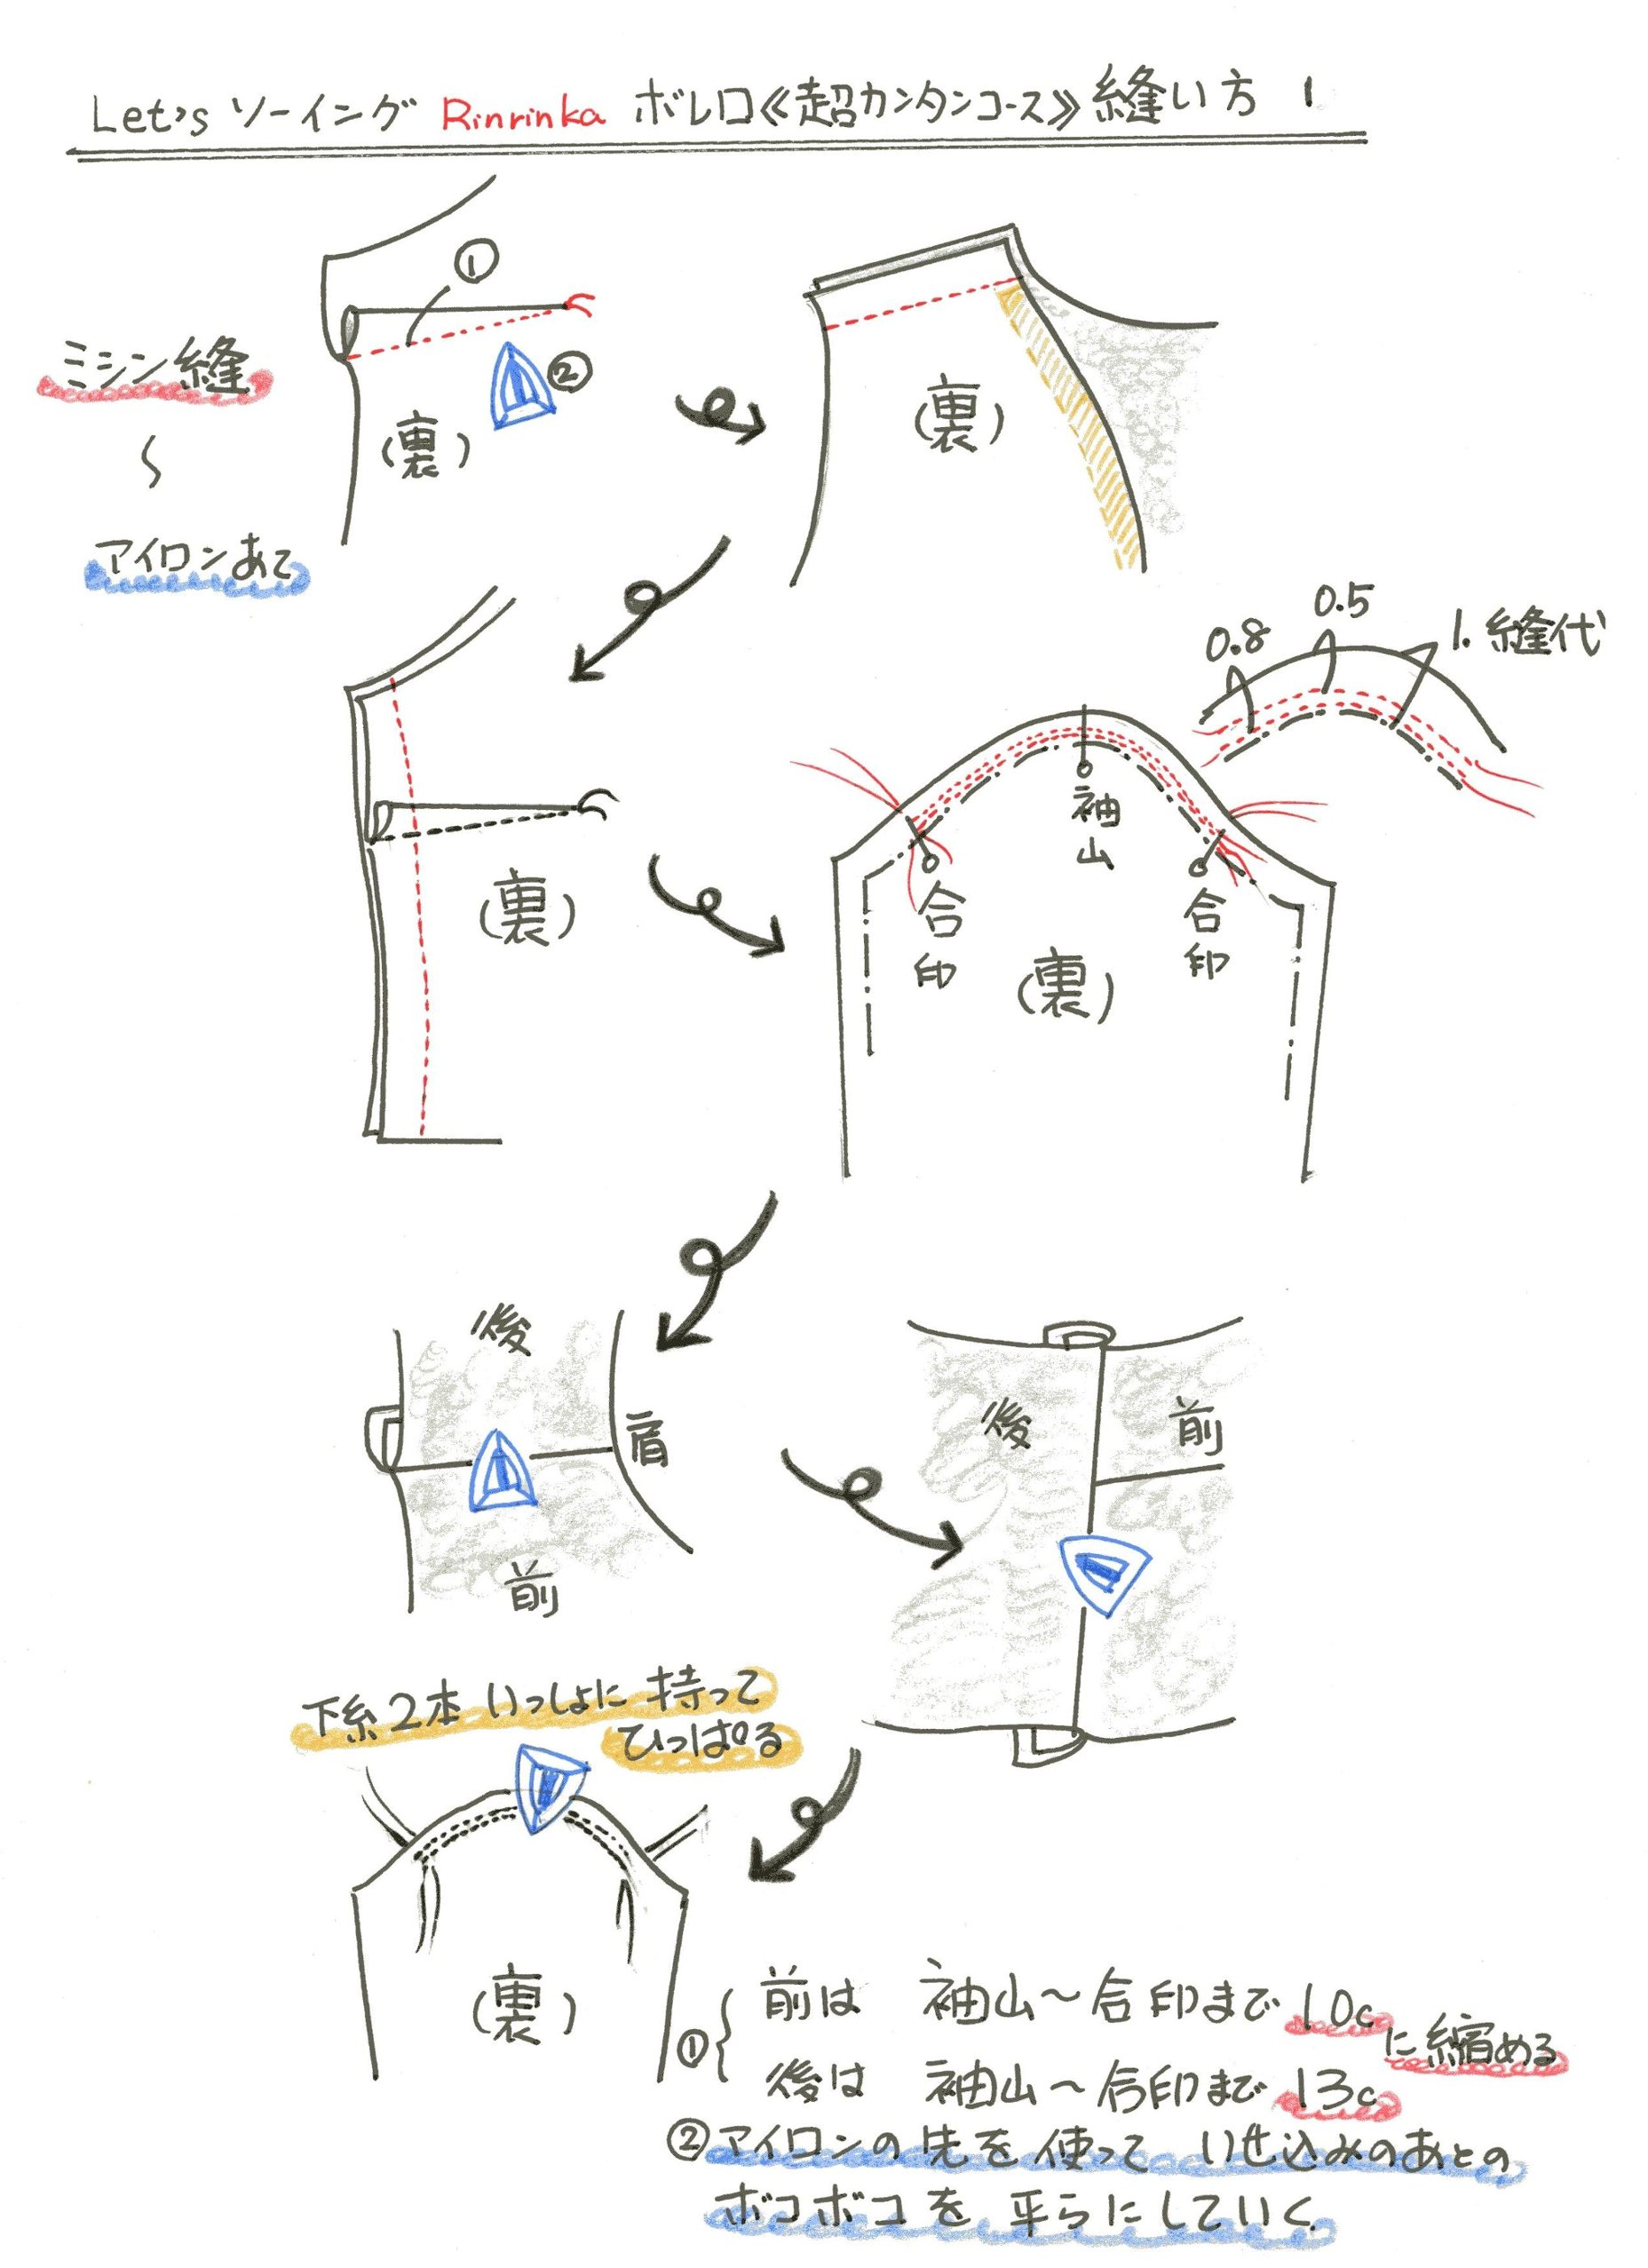 Let's ソーイング Rinrinka ボレロ《超カンタンコース》縫い方 1
①
ミシン縫
②
(裏)
(裏)
〜
アイロンあて
0.5
0.8
1. 縫代
袖山
合印
合印
(裏)
(裏)
後
肩
前
後
前
下糸2本 いっしょに 持って
ひっぱる
(裏)
① { 前は 袖山〜合印まで 10c
に縮める
後は 袖山〜合印まで 13c
②アイロンの先を使って いせ込みのあとの
ボコボコを 平らにしていく.